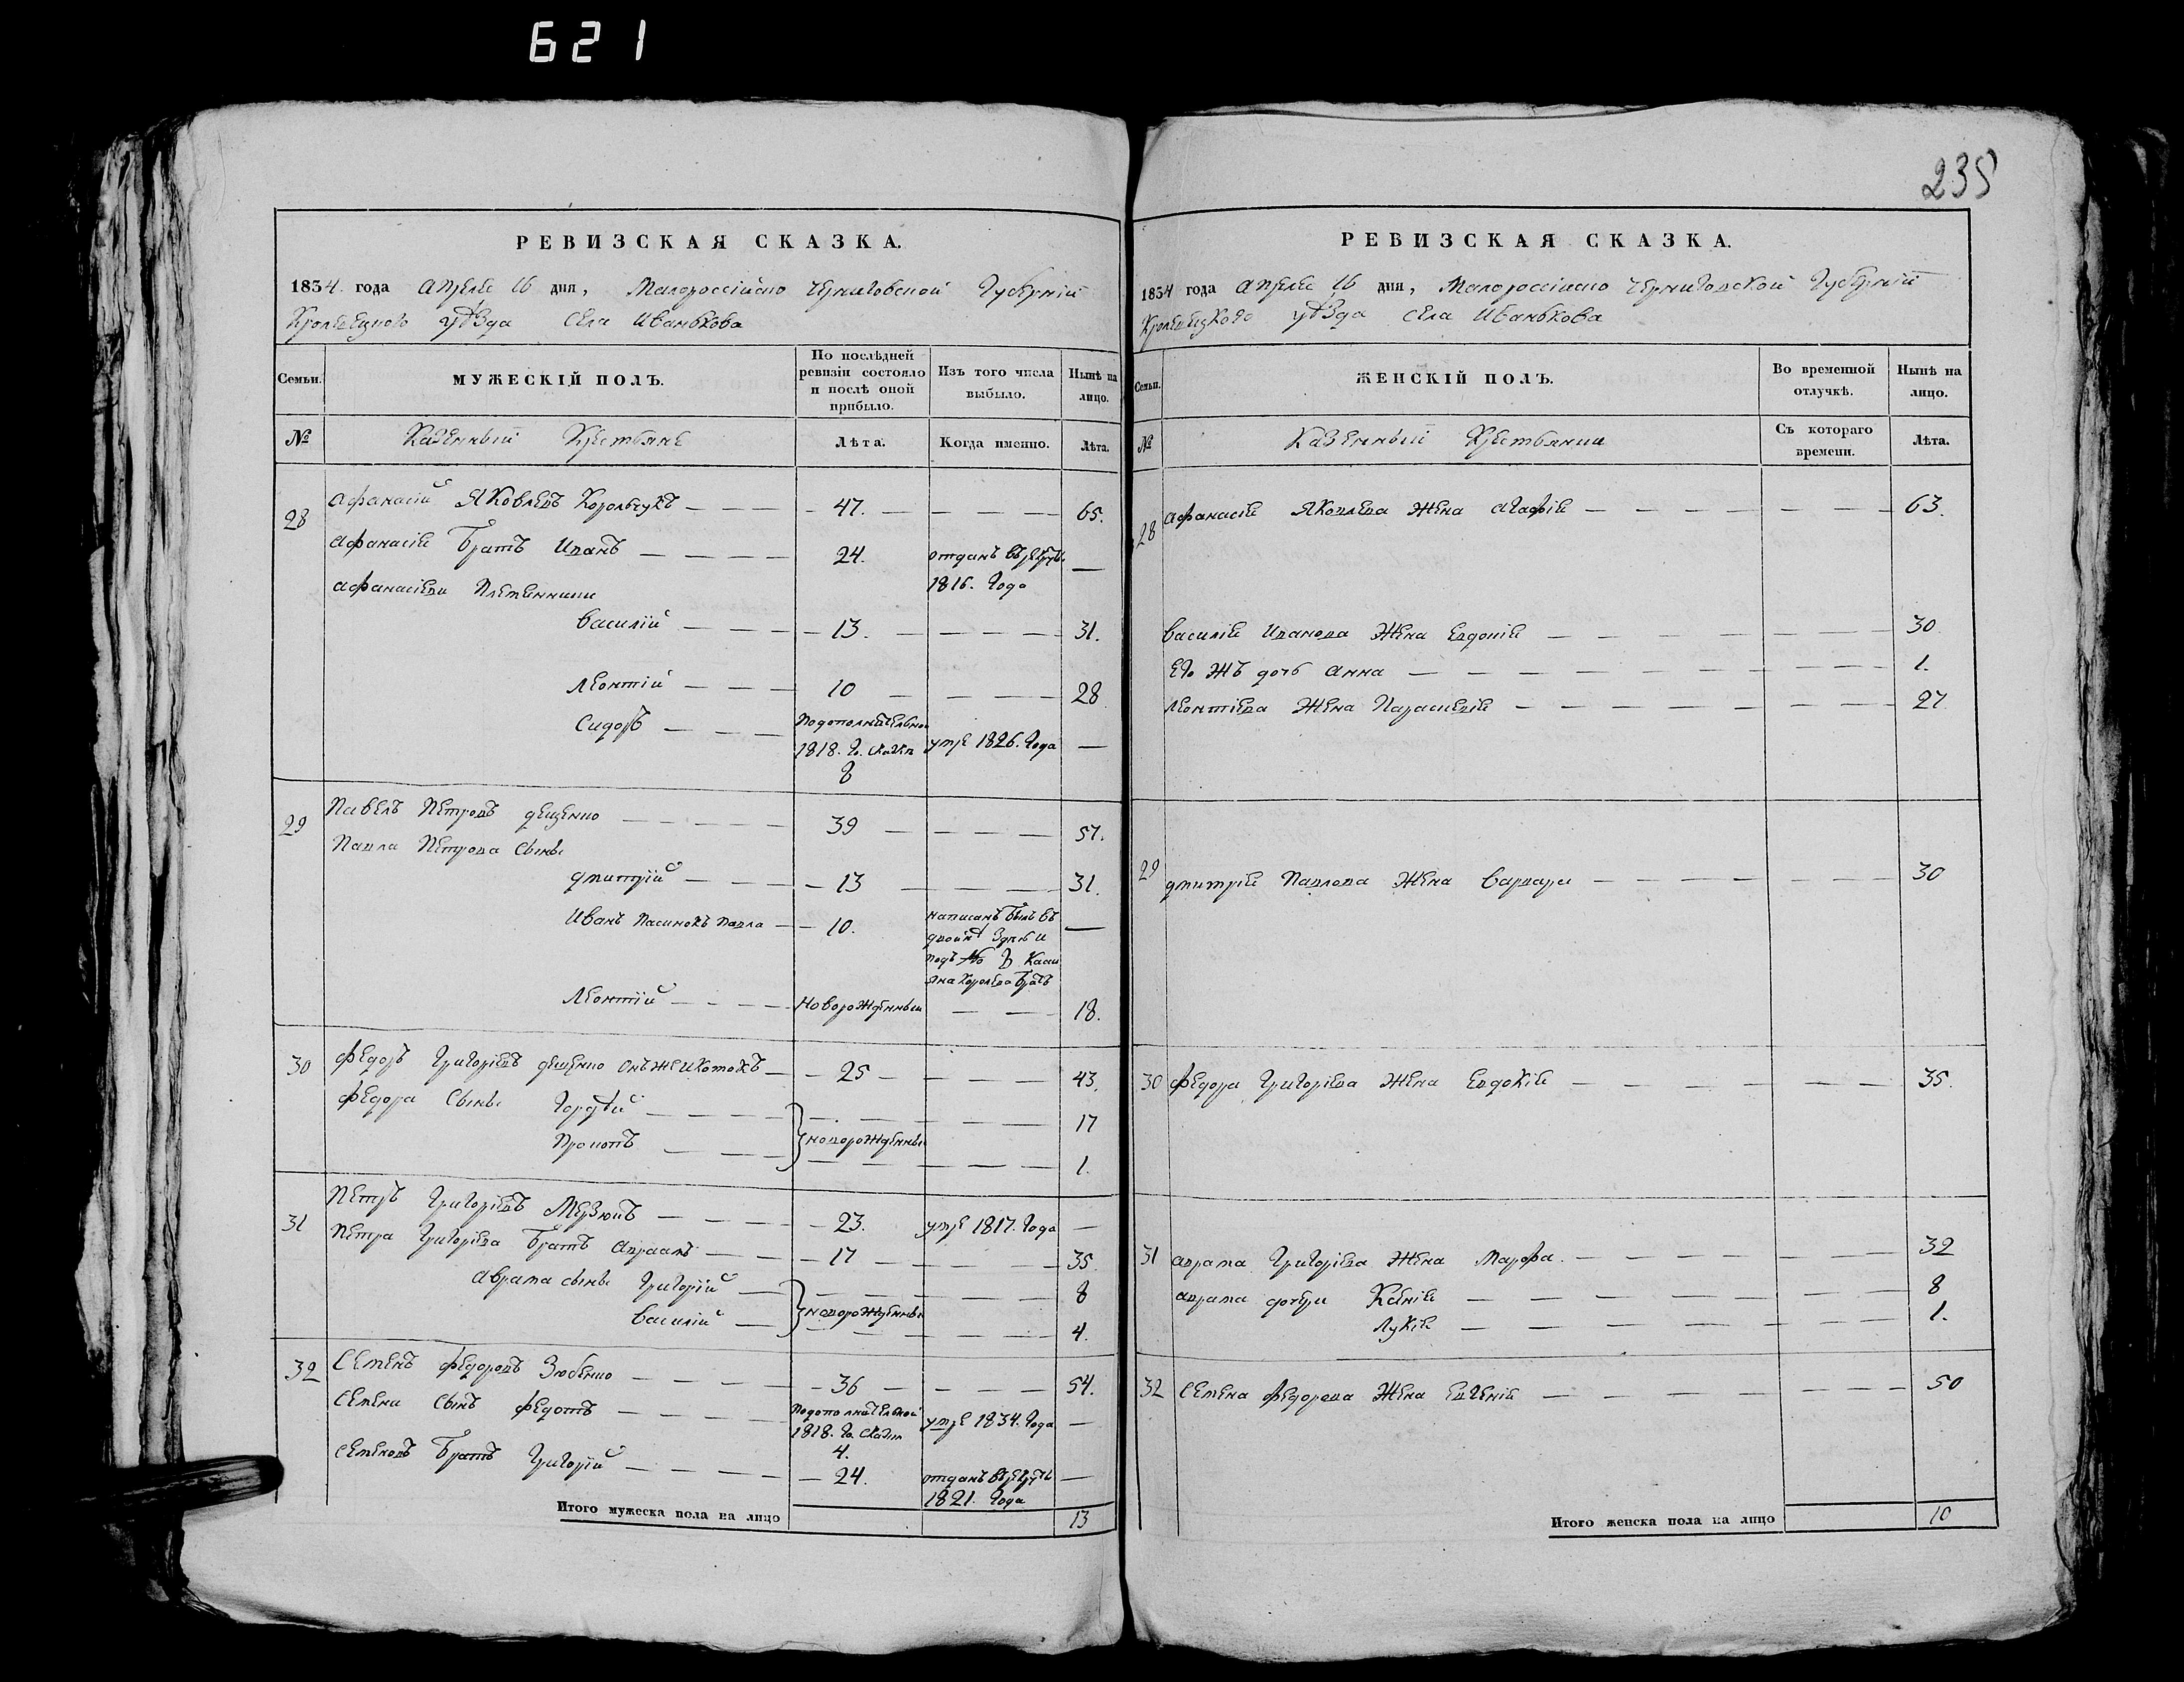 621
235
РЕВИЗСКАЯ СКАЗКА.
1834 года апреля 16 дня, Малороссійско Черниговской Губерніи
Кролевецкого уѣзда села Иванькова
Семьи.
МУЖЕСКІЙ ПОЛЪ.
По послѣдней ревизіи состояло и послѣ оной прибыло.
Изъ того числа выбыло.
Нынѣ на лицо.
№
Казенный Крестьяне
Лѣта.
Когда именно.
Лѣта.
28 Афанасій Яковлевъ Корольчукъ 47. 65.
Афанасіе Братъ Иванъ 24. отданъ въ рекруты 1816. Года
Афанасіеви Племенники
Василій 13. 31.
Леонтій 10 28
Сидоръ
Подополнительной 1818. Го. сказки 8
умре 1826. Года
29 Павелъ Петровъ дещенко 39 57.
Павла Петрова Сыны
Дмитрій 13 31.
Иванъ Пасинокъ Павла 10.
написанъ былъ въ
двойнѣ Здѣсь и
подъ № 8
Братъ
Леонтій Новорожденный 18.
30 Федоръ Григоріевъ дещенко онъ же и Котокъ 25 43.
Федора Сыны Гордѣй 17
новорожденны
Прокопъ 1.
31 Петръ Григоріевъ 23. умре 1817. Года
Петра Григоріева Братъ Авраамъ 17 35.
Аврама сыны Григорій 8
новорожденны
Василій 4.
32 Семенъ Федоровъ Зюбенко 36 54.
Семена Сынъ Федотъ
Подополнительной 1818. Го. сказки 4.
умре 1834. Года
Семеновъ Братъ Григорій 24. отданъ в рекруты 1821. Года
Итого мужеска пола на лицо 13
РЕВИЗСКАЯ СКАЗКА.
1834 года апреля 16 дня, Малороссійско Черниговской Губерніи
Кролевецкого уѣзда села Иванькова
Семьи.
ЖЕНСКІЙ ПОЛЪ.
Во временной отлучкѣ.
Нынѣ на лицо.
№
Казенный Крестьянки
Съ котораго времени.
Лѣта.
28 Афанасіе Яковлева Жена Агафіе 63.
Василіе Иванова Жена Евдокіе 30
Его жъ дочь Анна 1.
Леонтіева Жена Параскевіе 27
29 Дмитріе Павлова Жена Варвара 30
30 Федора Григоріева Жена Евдокіе 35.
31 Аврама Григоріева Жена Марфа 32
Аврама дочери Ксеніе 8
Лукіе 1.
32 Семена Федорова Жена Евгеніе 50
Итого женска пола на лицо 10